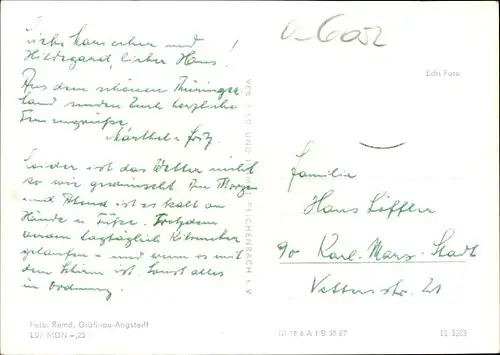 Liebe Hannchen und
Hildegard, lieber Hans!
Aus dem schönen Thüringer
Land senden Euch herzliche
Feriengrüße
Märthel u. Fritz
Leider ist das Wetter nicht
so wie gewünscht. Am Morgen
und Abend ist es kalt an
Hände u. Füße. Trotzdem
werden tagtäglich Kilometer
gelaufen – und wenn es mit
dem Schirm ist. Sonst alles
in Ordnung.
Foto: Remd, Gräfinau-Angstedt
EVP MDN -,22
VEB BILD UND HEIMAT REICHENBACH i. V.
a-6052
Echt Foto
Familie
Hans Löffler
90 Karl-Marx-Stadt
Vettersstr. 21
III 18 6 A 1/B 40 67
01 3223